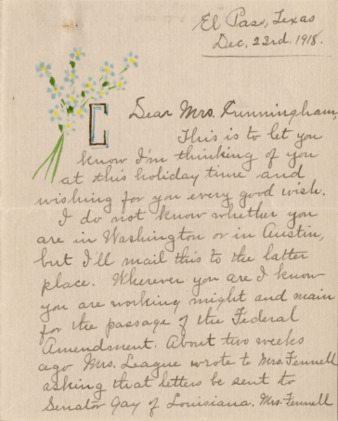 El Paso, Texas
Dec. 23rd. 1918.
C
Dear Mrs. Cunningham,
This is to let you
know I'm thinking of you
at this holiday time and
wishing for you every good wish.
I do not know whether you
are in Washington or in Austin,
but I'll mail this to the latter
place. Wherever you are I know
you are working might and main
for the passage of the Federal
Amendment. About two weeks
ago Mrs. League wrote to Mrs. Fennell
asking that letters be sent to
Senator Gay of Louisiana. Mrs. Fennell